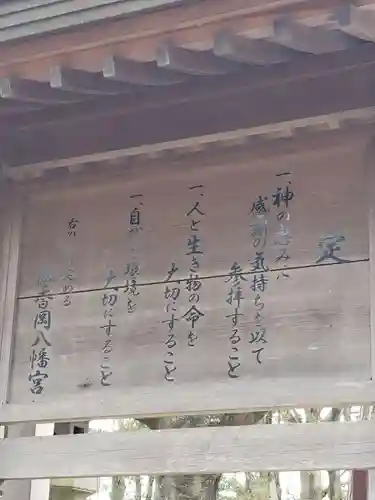 定
一、神の恵みに
感謝の気持ちを以て
参拝する こと
一、人と生き物の命を
大切にすること
一、自然 環境を
大切にすること
右の
定める
香岡八幡宮